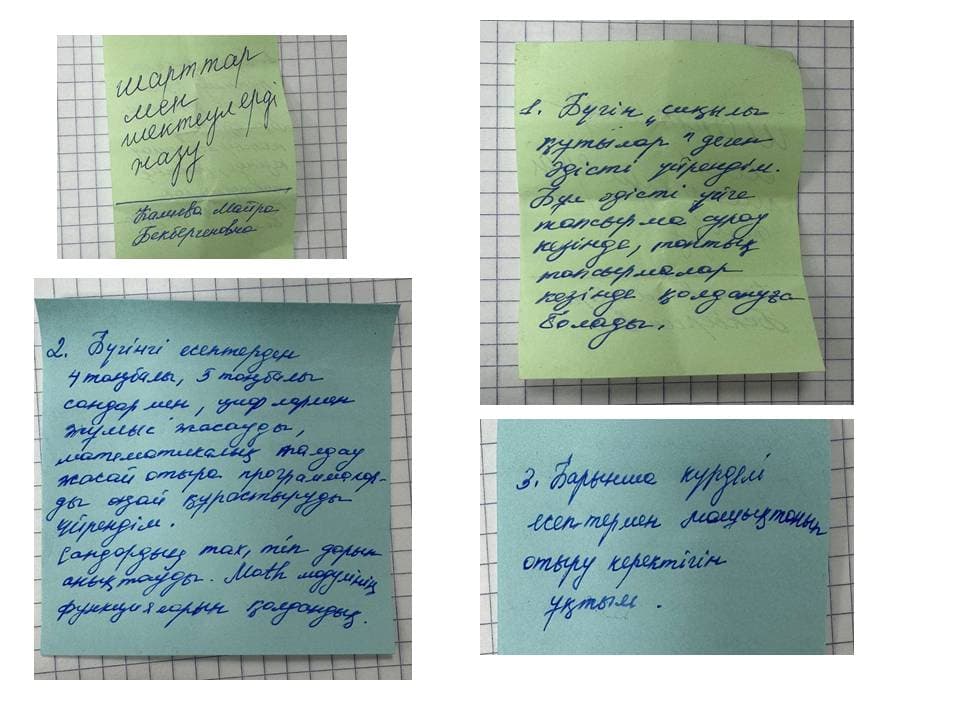 шарттар
мен
шектеулерді
жазу
Калиева Майра
Бекбергеновна
1. Бүгін „сиқырлы
құтылар" деген
әдісті үйрендім.
Бұл әдісті үйге
тапсырма сұрау
кезінде, топтық
тапсырмалар
кезінде қолдануға
болады.
2. Бүгінгі есептерден
4 таңбалы, 5 таңбалы
сандармен, цифрлармен
жұмыс жасауды,
математикалық талдау
жасай отыра программалар-
ды оңай құрастыруды
үйрендім.
Сандардың тақ, жұп
анықтауды. Math модулінің
функцияларын қолдандық.
3. Барынша күрделі
есептермен машықтанып
отыру керектігін
ұқтым.